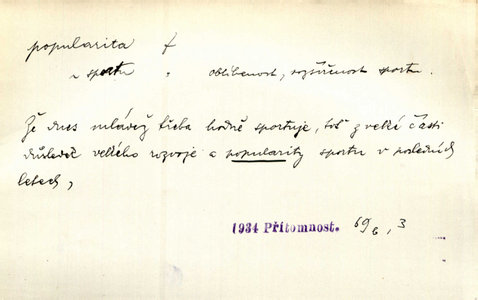 popularita f
~ sportu „ oblíbenost, rozšířenost sportu.
Že dnes mládež třeba hodně sportuje, toť z velké části
důsledek velkého rozvoje a popularity sportu v posledních
letech,
1934 Přítomnost. 69, 3